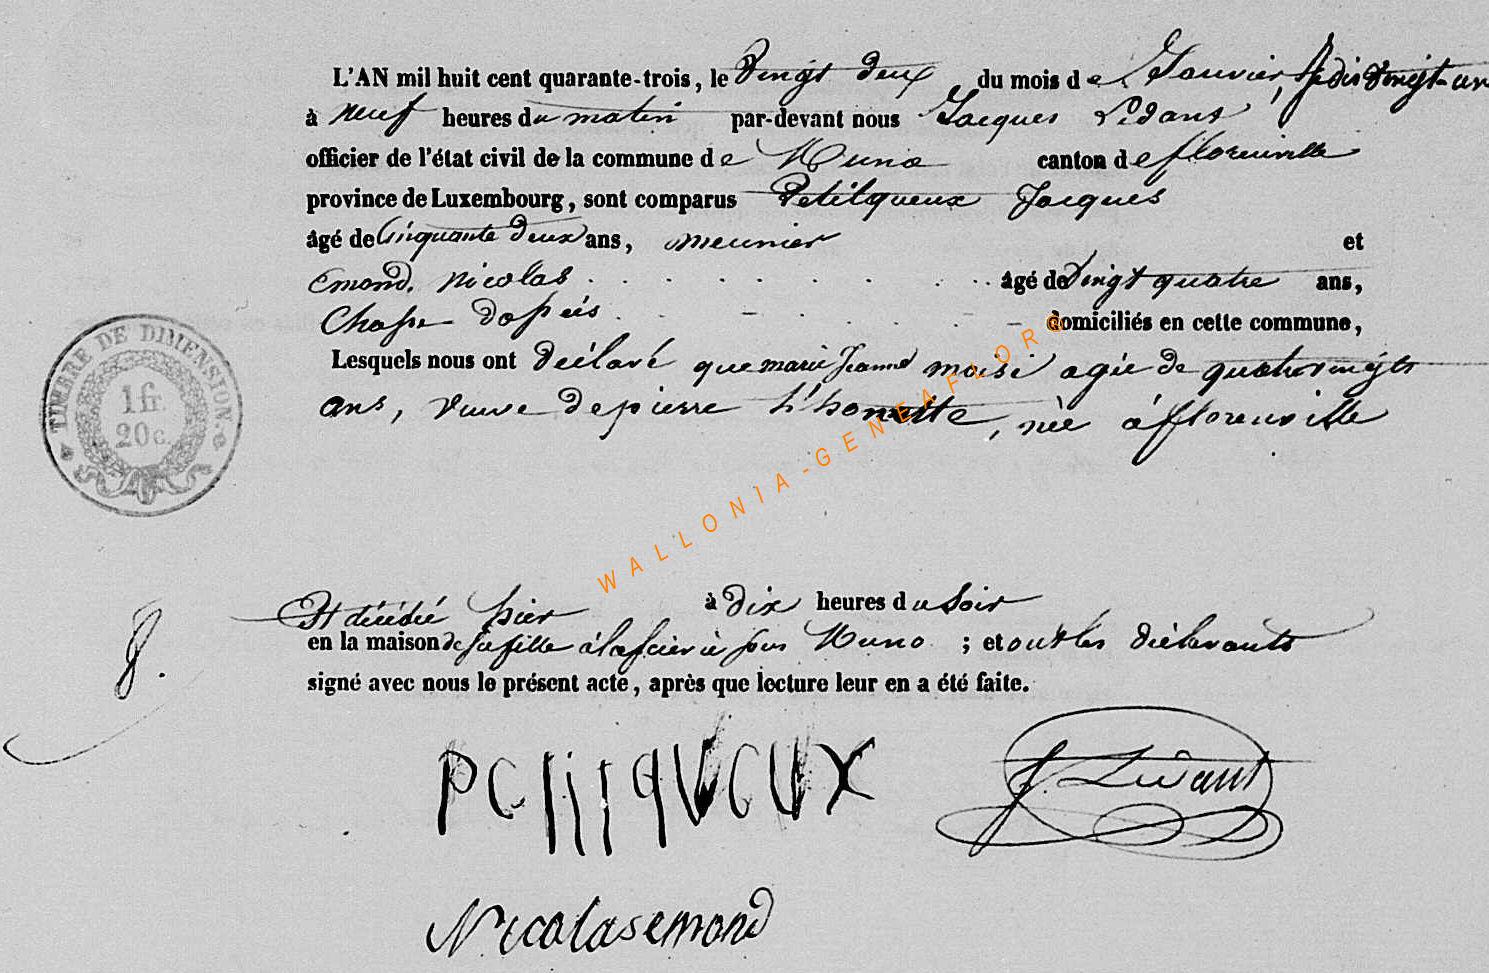 L'AN mil huit cent quarante-trois, le vingt deux du mois de Janvier, je dis vingt-un
à neuf heures du matin par-devant nous Jacques Lidant
officier de l'état civil de la commune de Muno canton de florenville
province de Luxembourg, sont comparus Petitqueux Jacques
âgé de Cinquante deux ans, meunier et
Emond. nicolas âgé de vingt quatre ans,
domiciliés en cette commune,
Lesquels nous ont déclaré que marie Jeanne moisi agée de quatrevingts
ans, veuve de pierre L'honette, née à florenville
Et décédé hier à dix heures du soir
en la maison de sa fille à la scierie sous Muno ; et ont les déclarants
signé avec nous le présent acte, après que lecture leur en a été faite.
8.
petitqueux
J. Lidant
Nicolas emond
TIMBRE DE DIMENSION.
1 fr.
20 c.
WALLONIA-GENEAFLORE